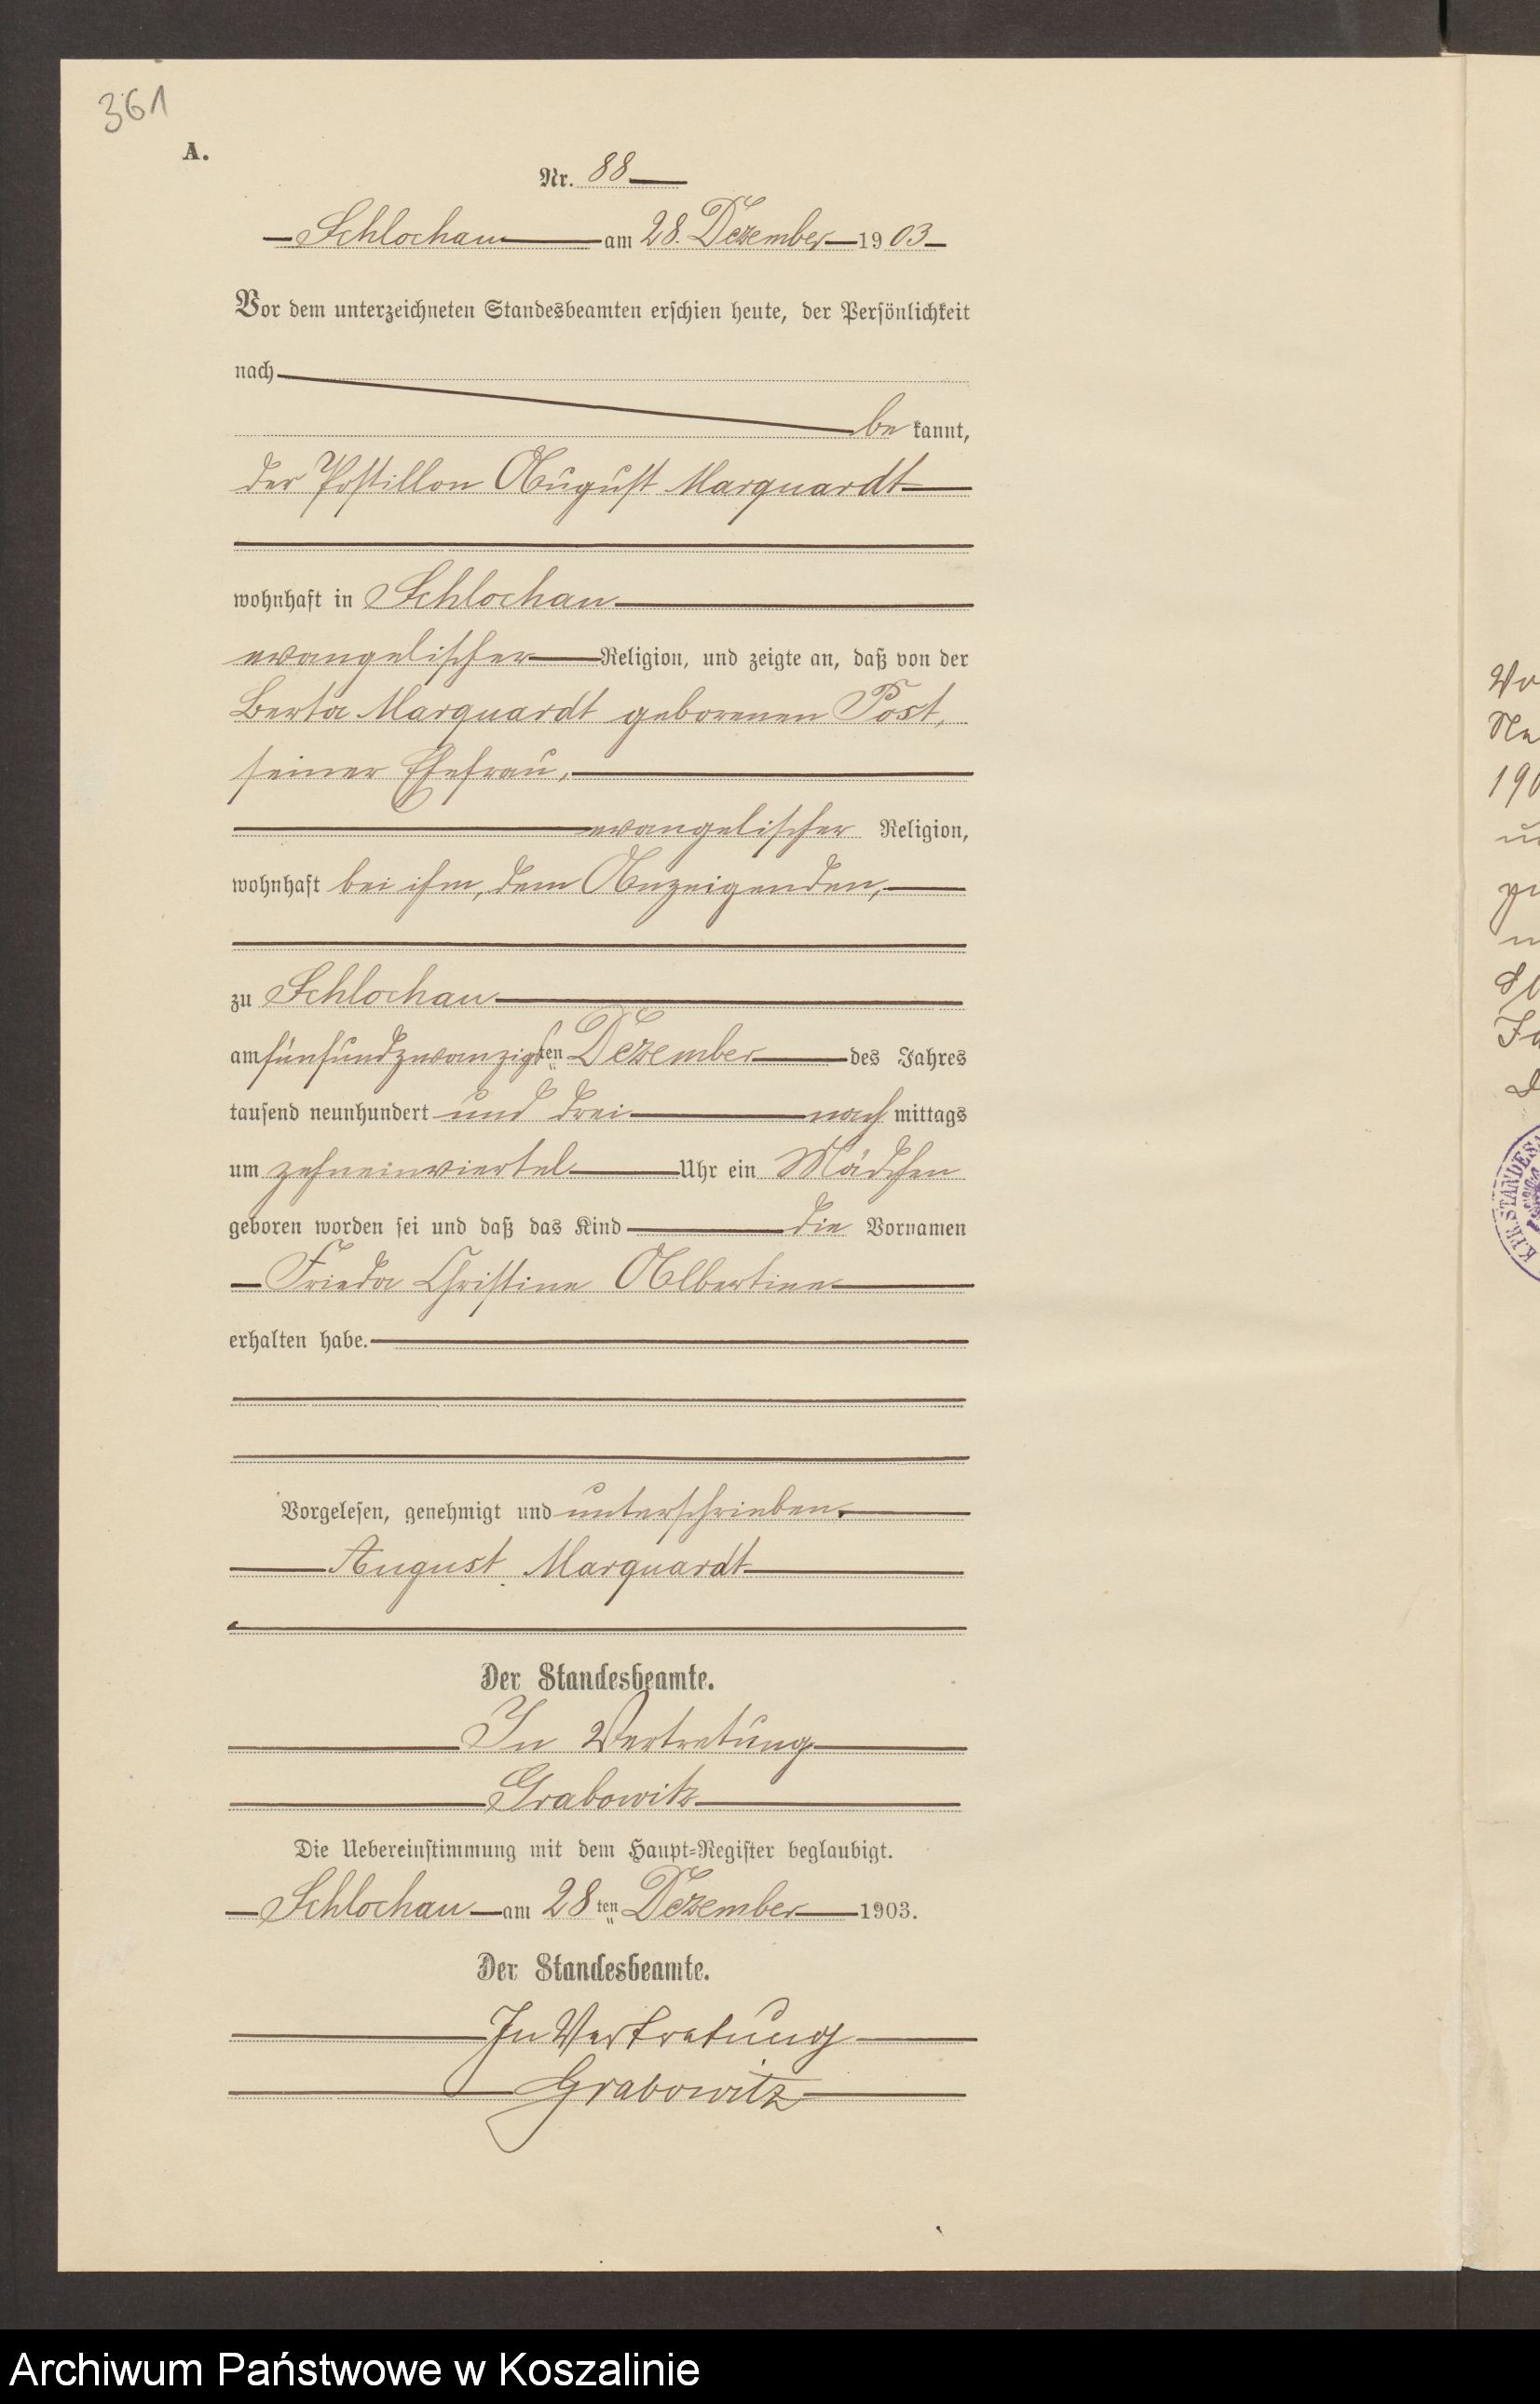 361
A.
Nr. 88
Schlochau am 28. Dezember 1903
Vor dem unterzeichneten Standesbeamten erschien heute, der Persönlichkeit
nach
be kannt,
der Postillon August Marquardt
wohnhaft in Schlochau
evangelischer Religion, und zeigte an, daß von der
Berta Marquardt geborenen Post,
seiner Ehefrau,
evangelischer Religion,
wohnhaft bei ihm, dem Anzeigenden,
zu Schlochau
am fünfundzwanzigsten Dezember des Jahres
tausend neunhundert und drei nach mittags
um zehneinviertel Uhr ein Mädchen
geboren worden sei und daß das Kind die Vornamen
Frieda Christine Albertine
erhalten habe.
Vorgelesen, genehmigt und unterschrieben.
August Marquardt
Der Standesbeamte.
In Vertretung
Grabowitz
Die Uebereinstimmung mit dem Haupt-Register beglaubigt.
Schlochau am 28ten Dezember 1903.
Der Standesbeamte.
In Vertretung
Grabowitz
190
Archiwum Państwowe w Koszalinie